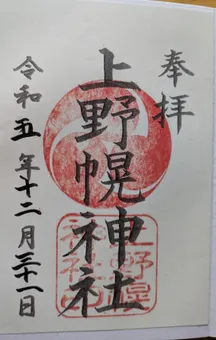 奉拝
上野幌神社
令和五年十二月三十一日
上野幌
神社